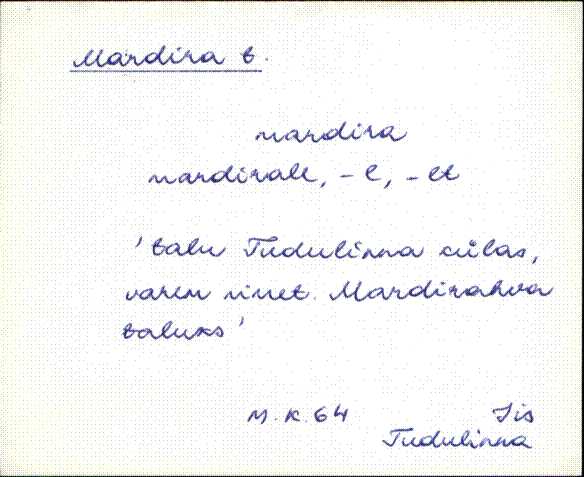 Mardira t.
mardira
mardiralle, -l, -lt
'talu Tudulinna külas,
varem nimet. Mardirahva
taluks'
M.K. 64 Iis
Tudulinna